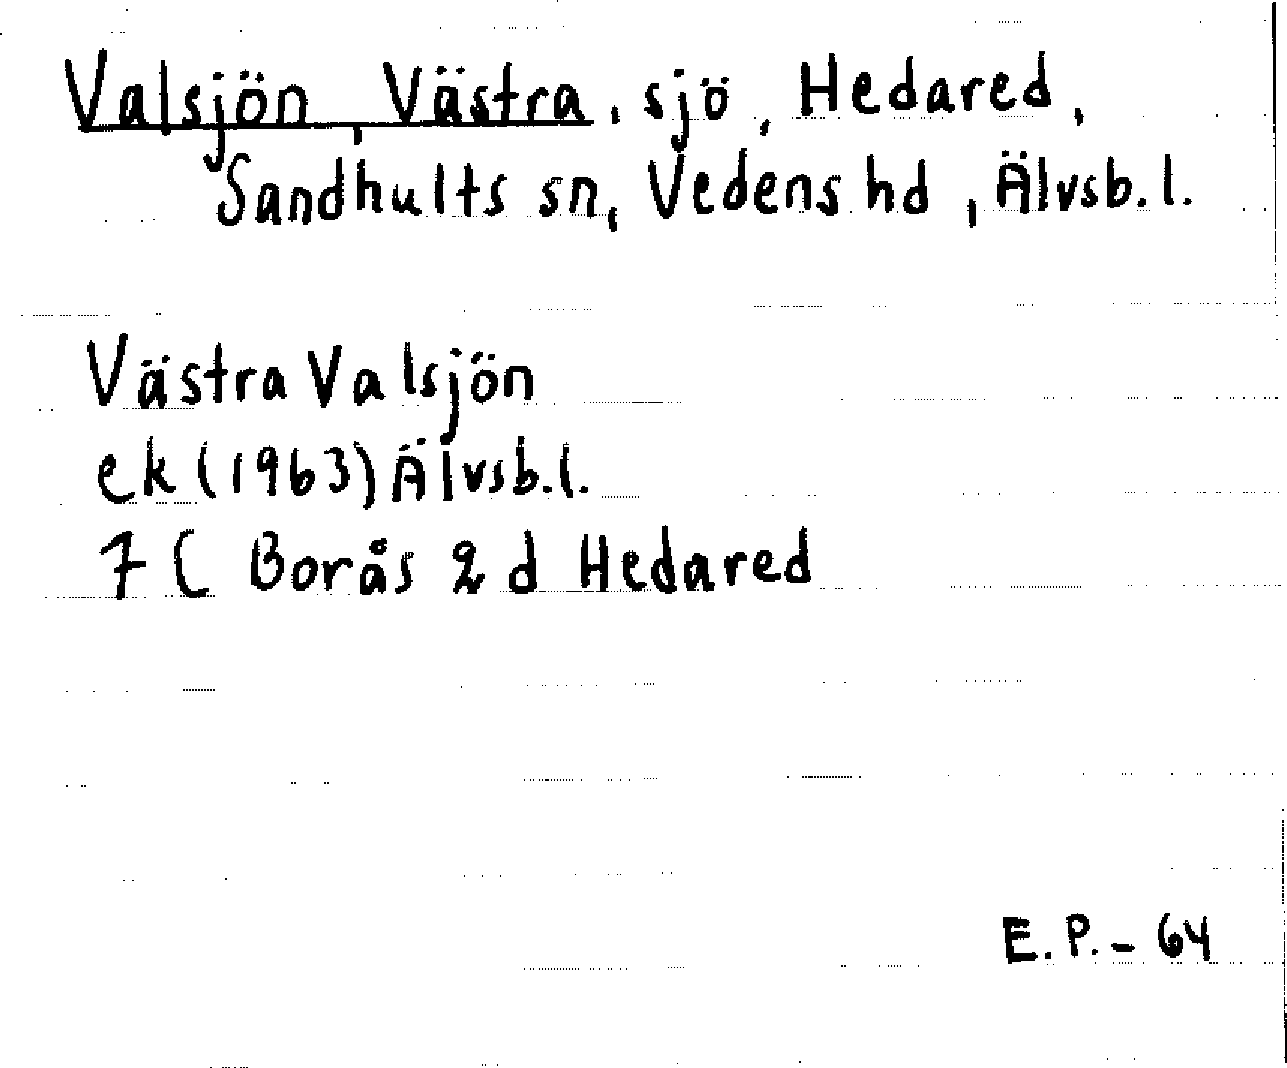 Valsjön, Västra, sjö, Hedared,
Sandhults sn, Vedens hd, Älvsb. l.
Västra Valsjön
ek (1963) Älvsb. l.
7 C Borås 2 d Hedared
E. P. - 64